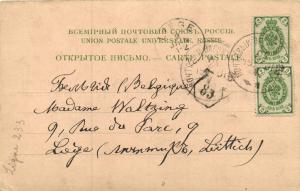 ВСЕМІРНЫЙ ПОЧТОВЫЙ СОЮЗ. РОССІЯ.
UNION POSTALE UNIVERSELLE. RUSSIE.
ОТКРЫТОЕ ПИСЬМО. — CARTE POSTALE.
Бельгія (Belgique)
Madame Waltzing
9, Rue du Parc, 9
Liège (Люттихъ, Lüttich)
Liège 333
83